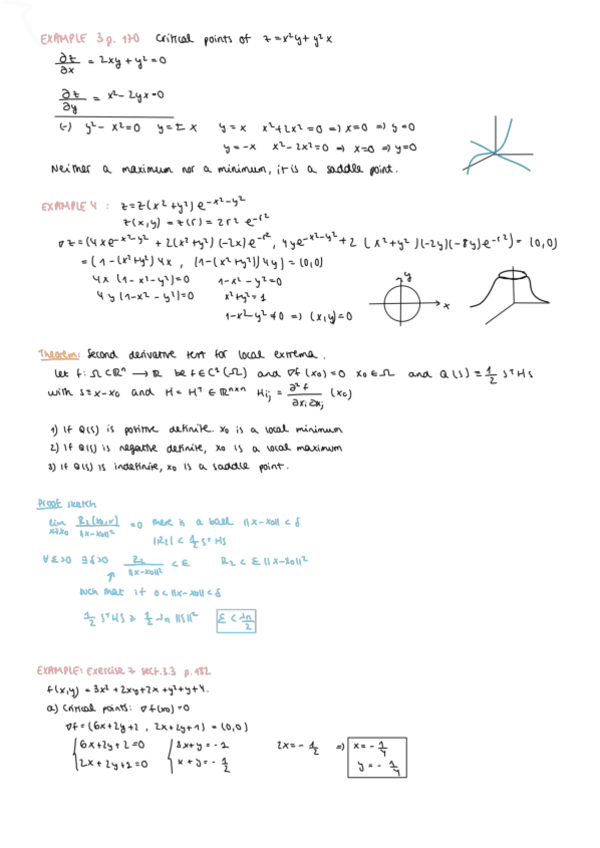 EXAMPLE 3 p. 170 Critical points of z = x²y + y²x
∂z/∂x = 2xy + y² = 0
∂z/∂y = x² - 2yx = 0
(-) y² - x² = 0 y = ± x y = x x² + 2x² = 0 => x = 0 => y = 0
y = -x x² - 2x² = 0 => x = 0 => y = 0
Neither a maximum nor a minimum, it is a saddle point.
EXAMPLE 4 : z = 2(x² + y²) e^{-x²-y²}
z(x,y) = z(r) = 2r² e^{-r²}
∇z = (4xe^{-x²-y²} + 2(x²+y²)(-2x)e^{-r²}, 4ye^{-x²-y²} + 2(x²+y²)(-2y)(-8y)e^{-r²}) = (0,0)
= (1-(x²+y²) 4x , (1-(x²+y²)) 4y) = (0,0)
4x (1-x²-y²) = 0 1-x²-y² = 0
4y (1-x²-y²) = 0 x²+y² = 1
1-x²-y² ≠ 0 => (x,y) = 0
y
x
Theorem: Second derivative test for local extrema.
Let f: Ω⊂ℝⁿ → ℝ be f∈C²(Ω) and ∇f(x₀) = 0 x₀∈Ω and Q(s) = 1/2 sᵀHs
with s = x-x₀ and H = Hᵀ ∈ ℝⁿˣⁿ Hij = ∂²f/∂xi∂xj (x₀)
1) If Q(s) is positive definite x₀ is a local minimum
2) If Q(s) is negative definite, x₀ is a local maximum
3) If Q(s) is indefinite, x₀ is a saddle point.
Proof sketch
lim x→x₀ R₂(x₀,x)/||x-x₀||² = 0 there is a ball ||x-x₀|| < δ
|R₂| < 1/2 sᵀHs
∀ε>0 ∃δ>0 R₂/||x-x₀||² < ε R₂ < ε ||x-x₀||²
such that if 0 < ||x-x₀|| < δ
1/2 sᵀHs ≥ 1/2 λn ||s||² ε < λn/2
EXAMPLE: Exercise 7 sect. 3.3 p. 182
f(x,y) = 3x² + 2xy + 2x + y² + y + 4.
a) Critical points: ∇f(x₀) = 0
∇f = (6x+2y+2 , 2x+2y+1) = (0,0)
{6x+2y+2=0 {3x+y = -1 2x = -1/2 => x = -1/4
{2x+2y+1=0 {x+y = -1/2 y = -1/4